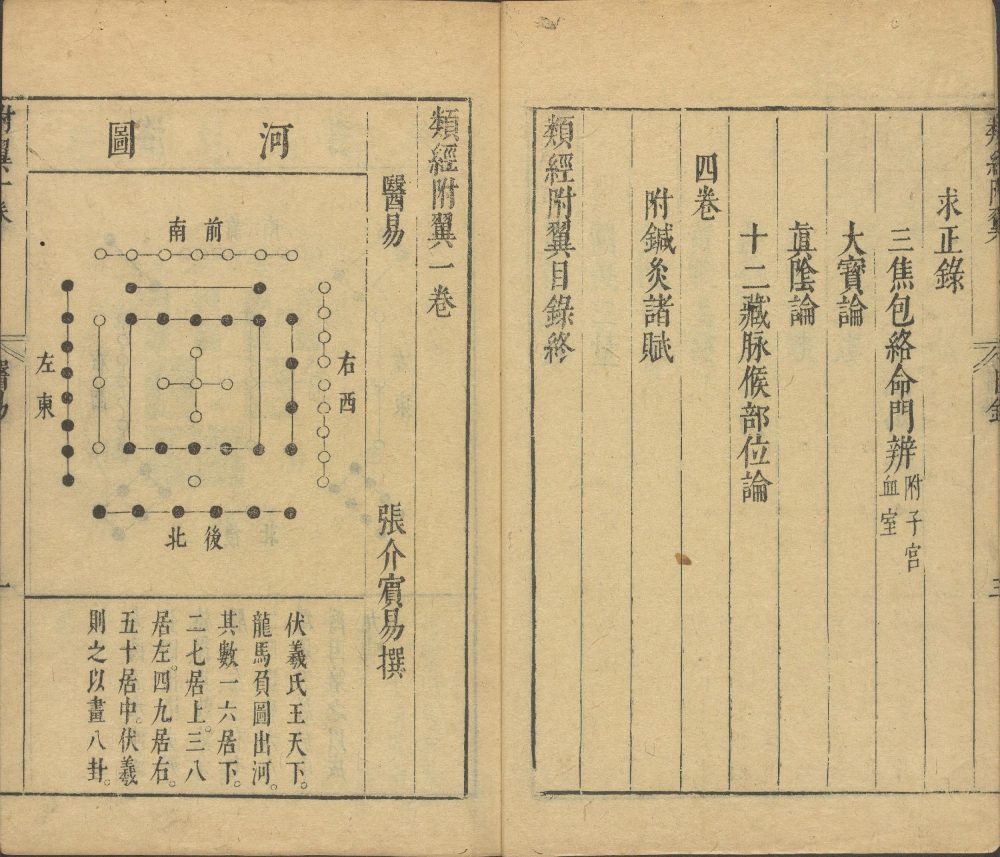 求正錄
三焦包絡命門辨附子宮血室
大寶論
真陰論
十二藏脉候部位論
四卷
附鍼灸諸賦
類經附翼目錄終
類經附翼一卷
醫易
張介賓易撰
河圖
前南
右西
左東
後北
伏羲氏王天下。
龍馬負圖出河。
其數一六居下。
二七居上。三八
居左。四九居右。
五十居中。伏羲
則之以畫八卦。